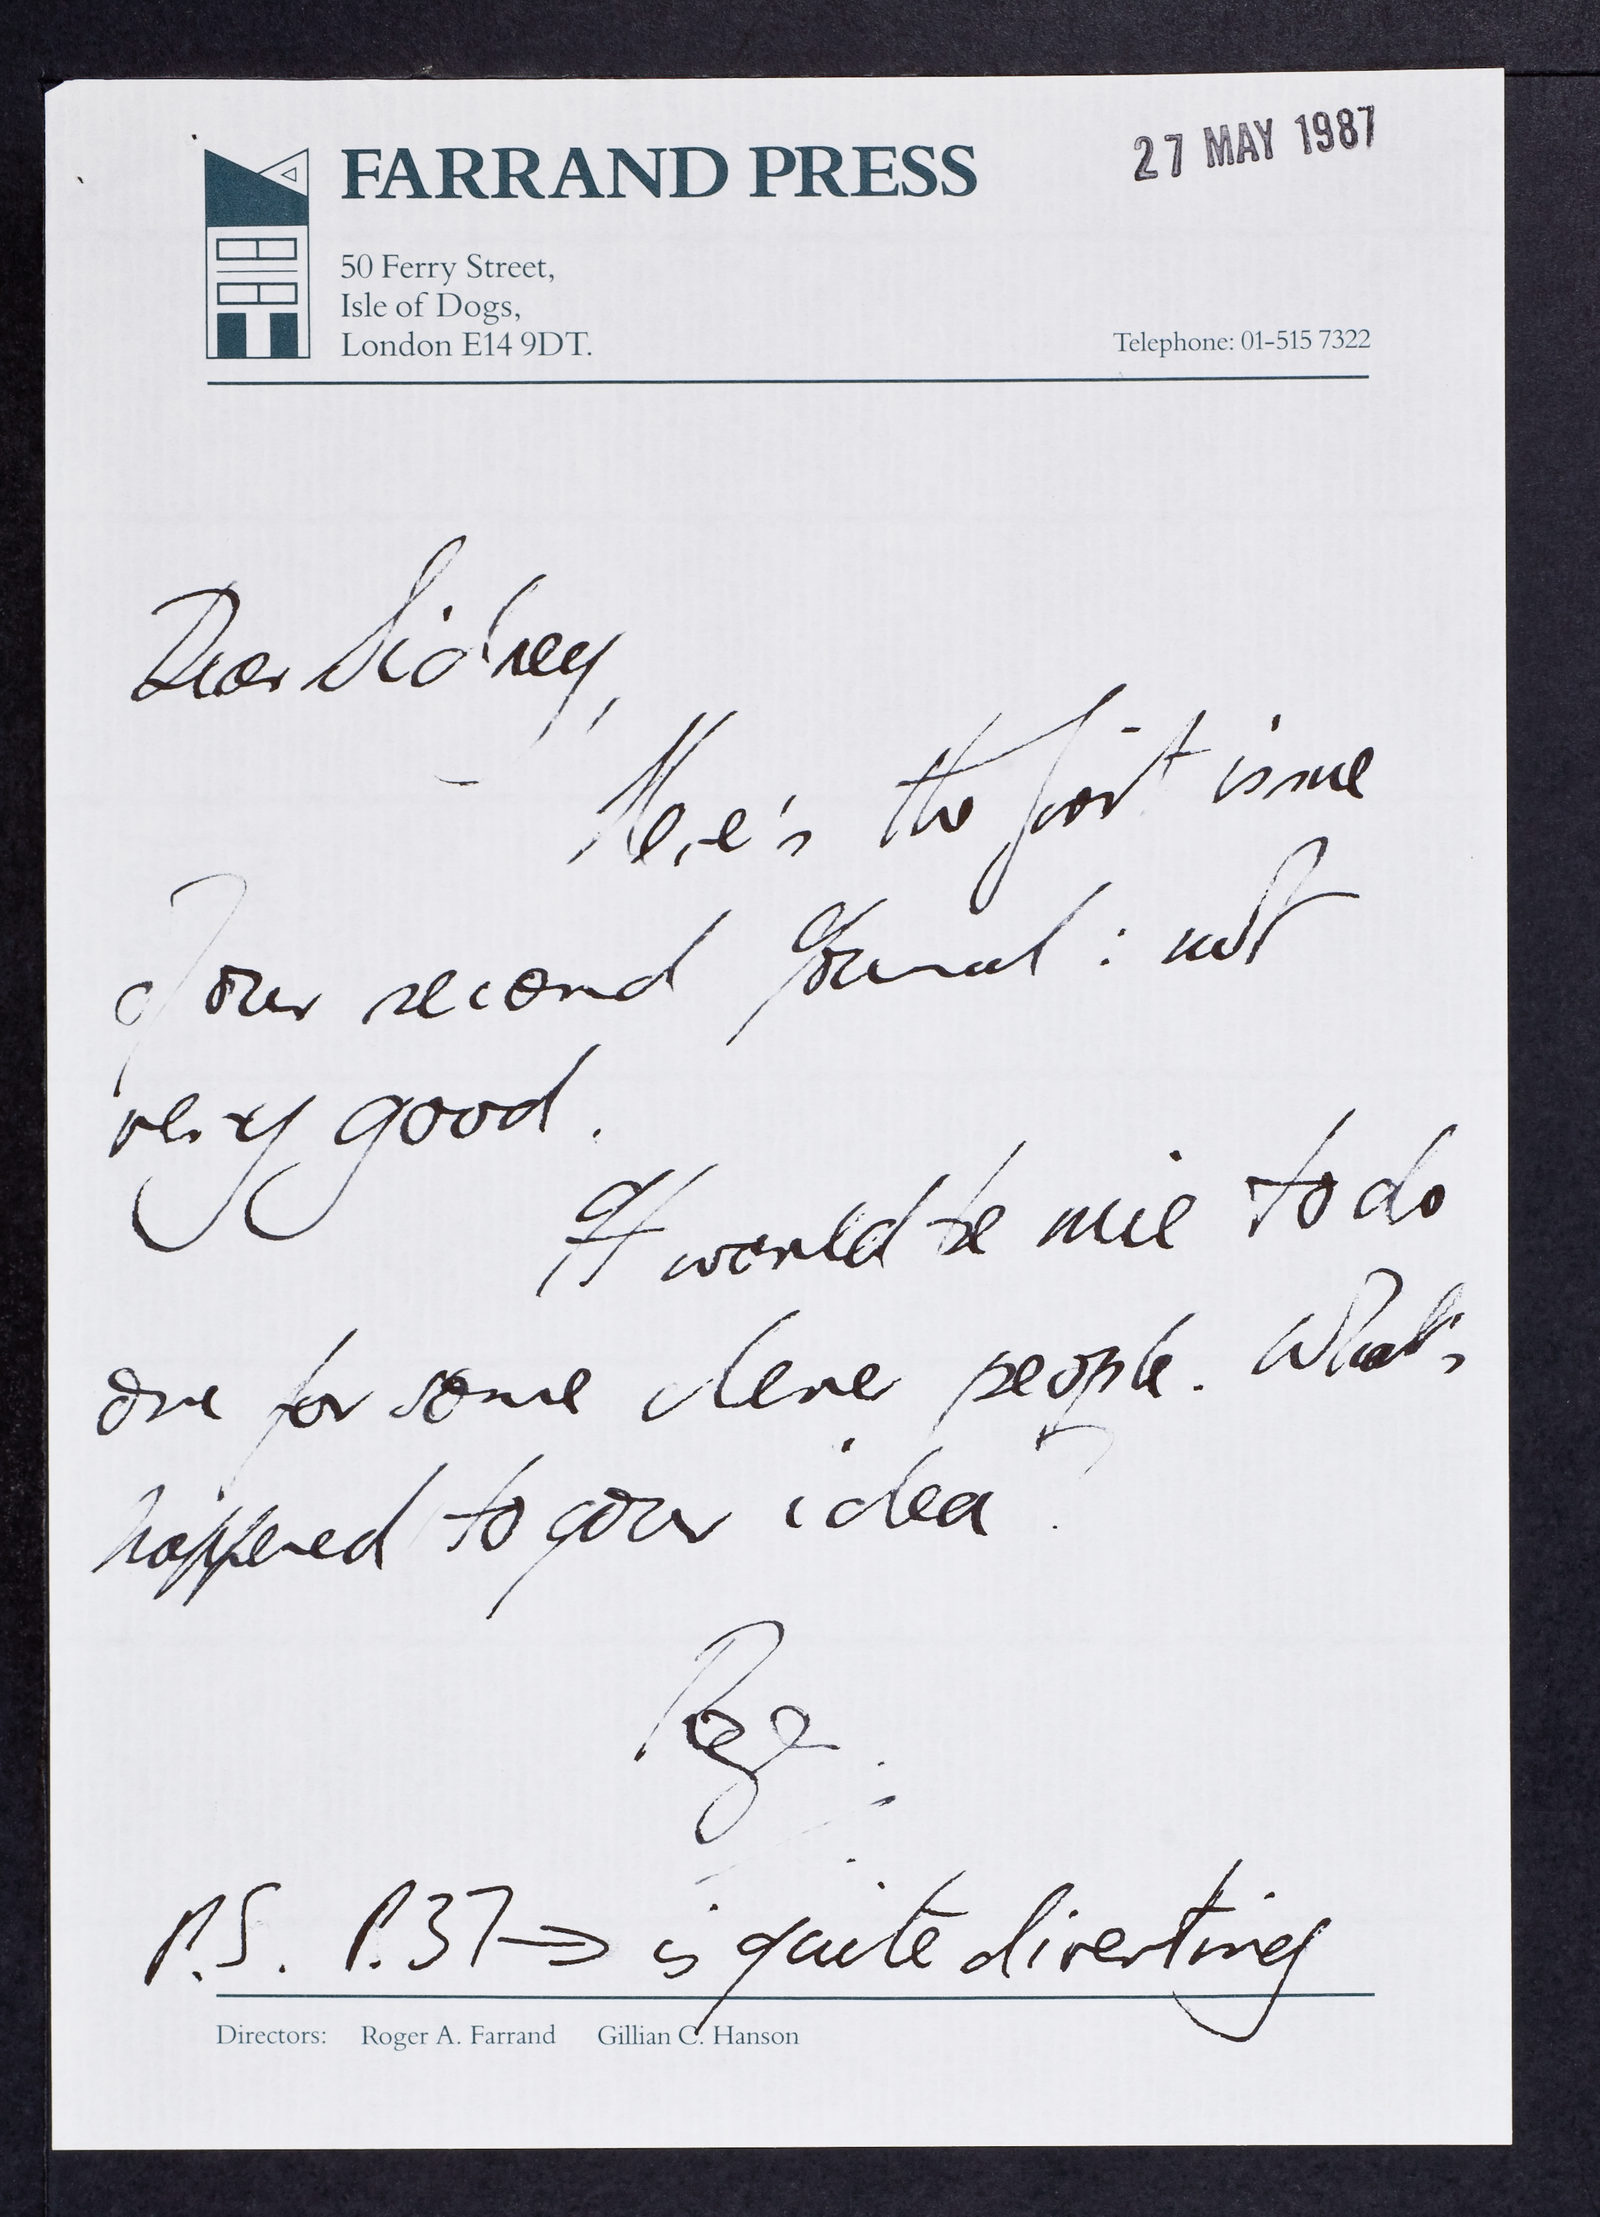 FARRAND PRESS
27 MAY 1987
50 Ferry Street,
Isle of Dogs,
London E14 9DT.
Telephone: 01-515 7322
Dear Sidney,
Here's the first issue
of our second journal: not
very good.
It would be nice to do
one for some clever people. What's
happened to your idea?
Roger
P.S. P.37→ is quite diverting
Directors: Roger A. Farrand Gillian C. Hanson